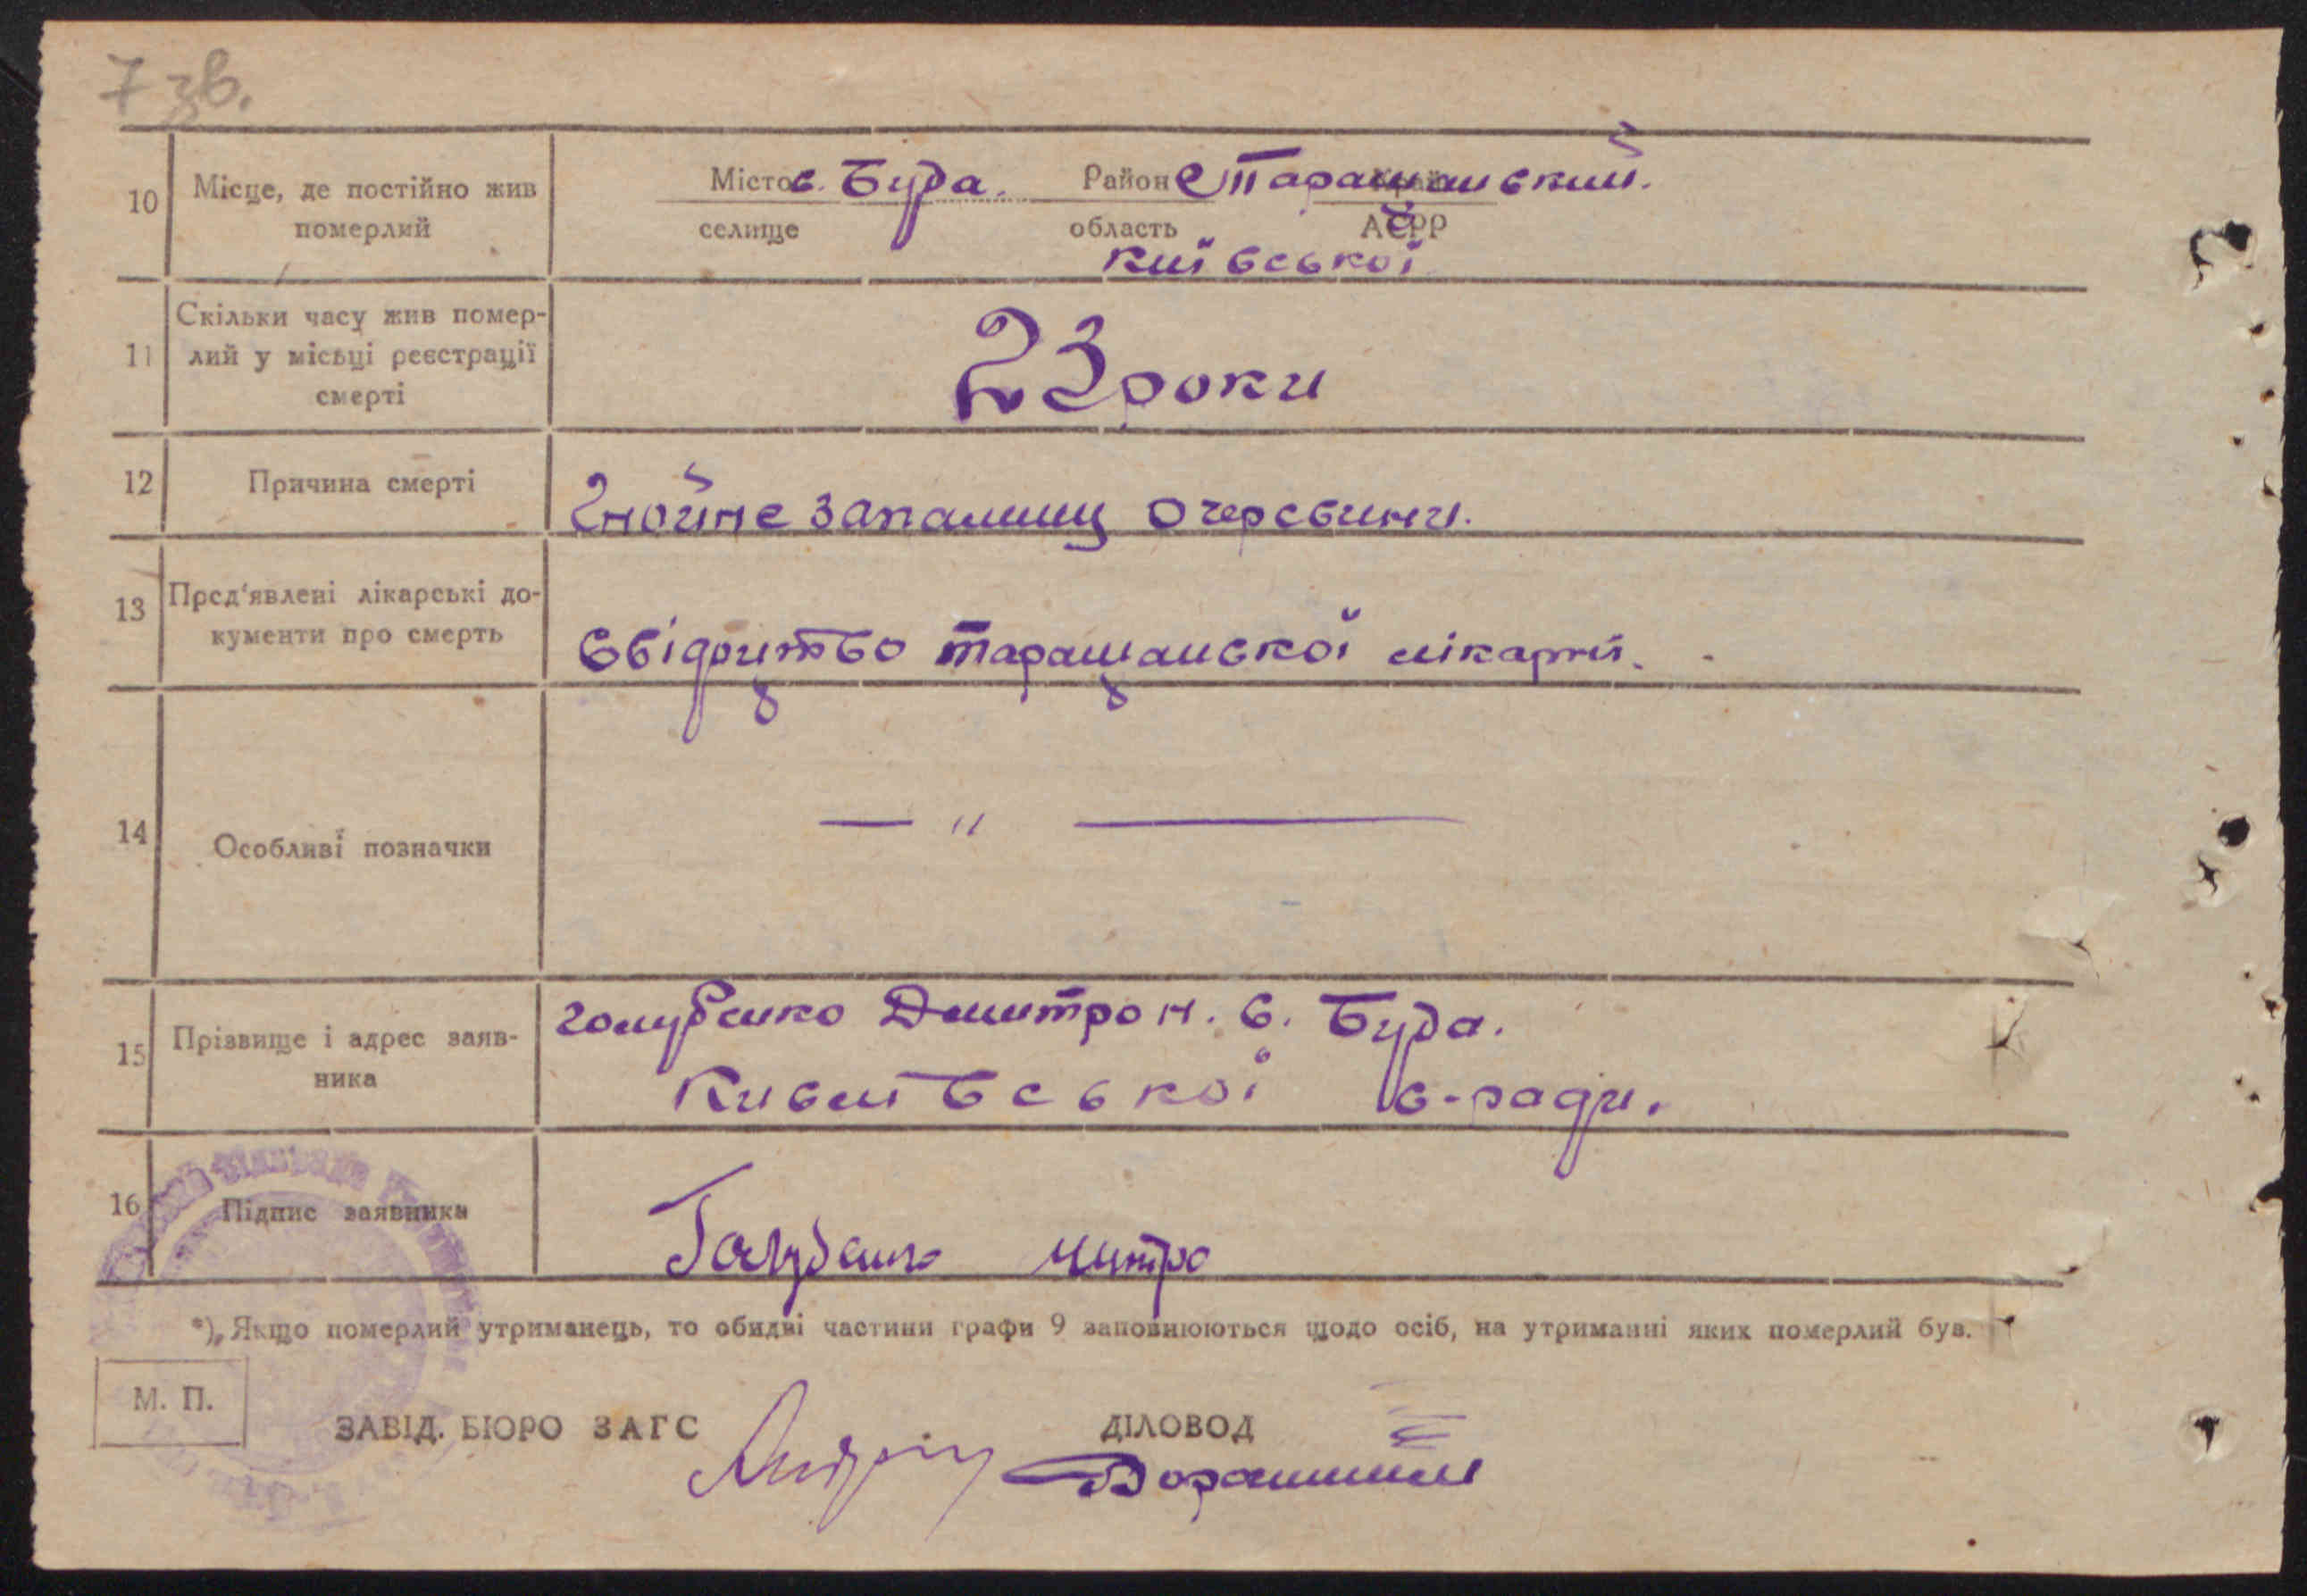 7 зв.
10 Місце, де постійно жив Місто с. Буда. Район Таращанский.
померлий селище область АСРР
київської
Скільки часу жив помер-
11 лий у місьці реєстрації 23 роки
смерті
12 Причина смерті Гнойне запалинц очеревини.
13 Пред'явлені лікарські до-
кументи про смерть Свідоцтво таращанскої лікарні.
14 Особливі позначки — " —
15 Прізвище і адрес заяв- голубенко Дмитро Н. с. Буда.
ника Кившовської с-ради.
16 Підпис заявника Голубенко митро
*) Якщо померлий утриманець, то обидві частини графи 9 заповнюються щодо осіб, на утриманні яких померлий був.
М. П.
ЗАВІД. БЮРО ЗАГС ДІЛОВОД